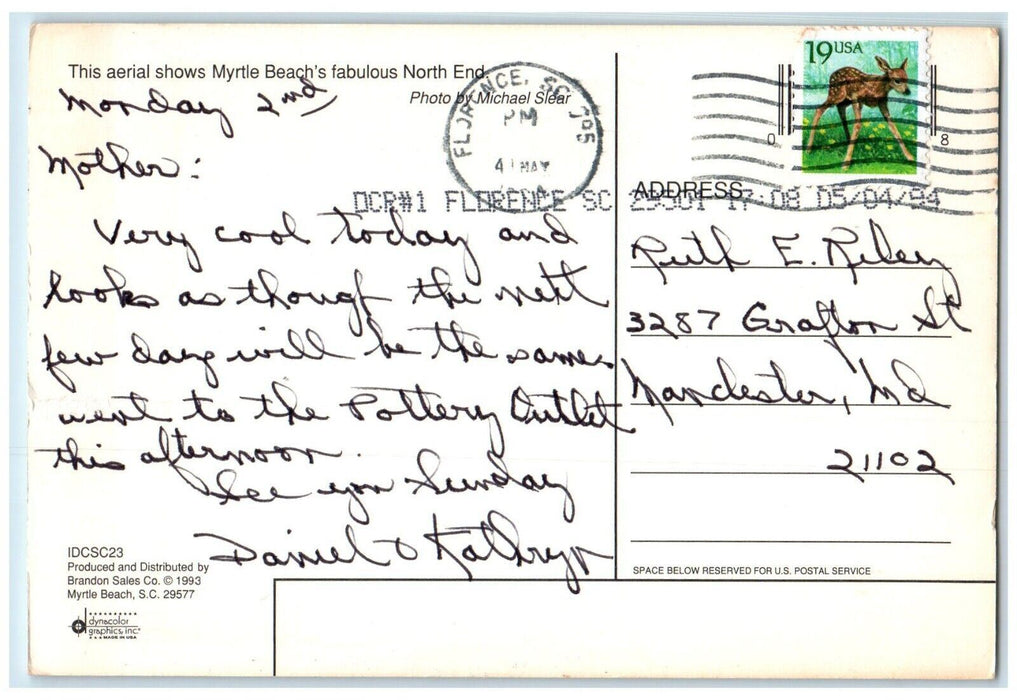 This aerial shows Myrtle Beach's fabulous North End.
Photo by Michael Slear
Monday 2nd
Mother:
Very cool today and
looks as though the next
few days will be the same
went to the Pottery Outlet
this afternoon.
See you Sunday
Daniel & Kathryn
IDCSC23
Produced and Distributed by
Brandon Sales Co. © 1993
Myrtle Beach, S.C. 29577
dynacolor
graphics, inc.
MADE IN USA
FLORENCE, SC 295
PM
4 MAY
OCR#1 FLORENCE SC 29501 17:08 05/04/94
19 USA
0 8
ADDRESS
Ruth E. Riley
3287 Grafton St
Manchester, Md
21102
SPACE BELOW RESERVED FOR U.S. POSTAL SERVICE